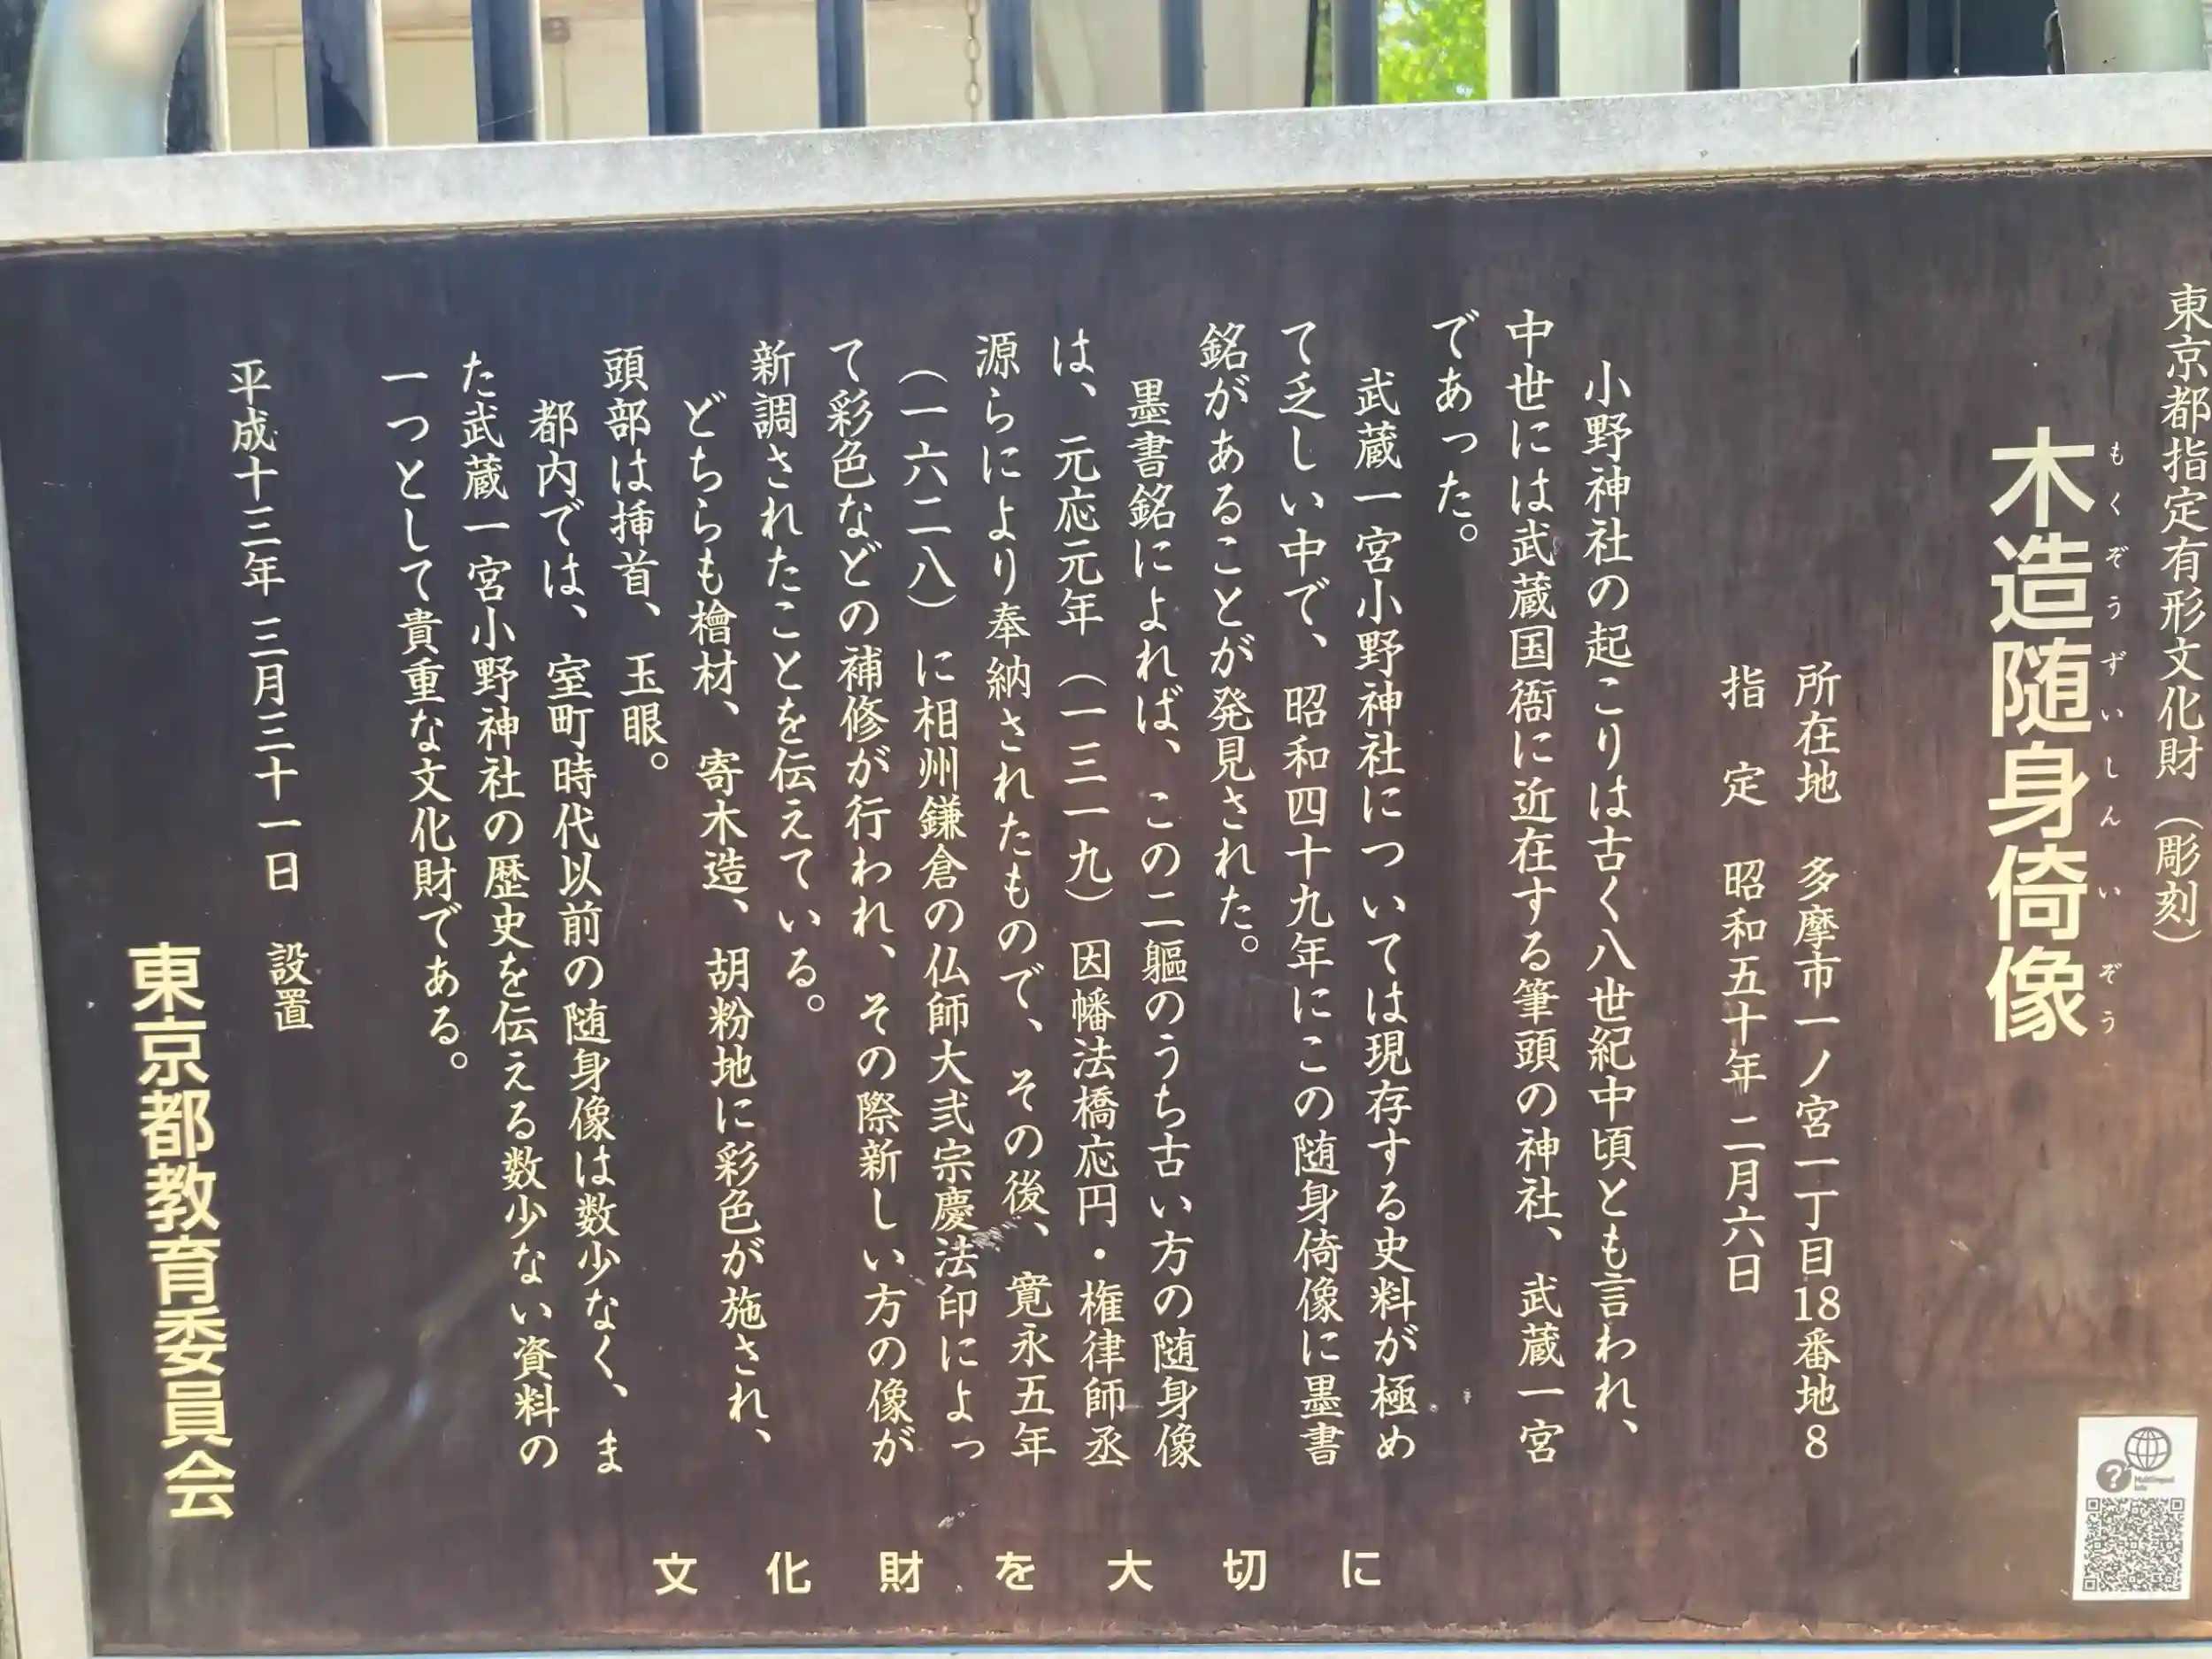 東京都指定有形文化財（彫刻）
木造随身倚像
もくぞうずいしんいぞう
所在地　多摩市一ノ宮一丁目18番地8
指　定　昭和五十年二月六日
小野神社の起こりは古く八世紀中頃とも言われ、
中世には武蔵国衙に近在する筆頭の神社、武蔵一宮
であった。
武蔵一宮小野神社については現存する史料が極め
て乏しい中で、昭和四十九年にこの随身倚像に墨書
銘があることが発見された。
墨書銘によれば、この二軀のうち古い方の随身像
は、元応元年（一三一九）因幡法橋応円・権律師丞
源らにより奉納されたもので、その後、寛永五年
（一六二八）に相州鎌倉の仏師大弐宗慶法印によっ
て彩色などの補修が行われ、その際新しい方の像が
新調されたことを伝えている。
どちらも檜材、寄木造、胡粉地に彩色が施され、
頭部は挿首、玉眼。
都内では、室町時代以前の随身像は数少なく、ま
た武蔵一宮小野神社の歴史を伝える数少ない資料の
一つとして貴重な文化財である。
平成十三年三月三十一日　設置
東京都教育委員会
文化財を大切に
Multilingual
Info